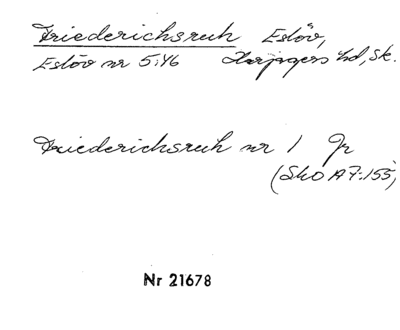 Friederichsruh Eslöv,
Eslöv nr 5:46 Harjagers hd, Sk.
Friederichsruh nr 1 Jr
(SkO A7:155)
Nr 21678